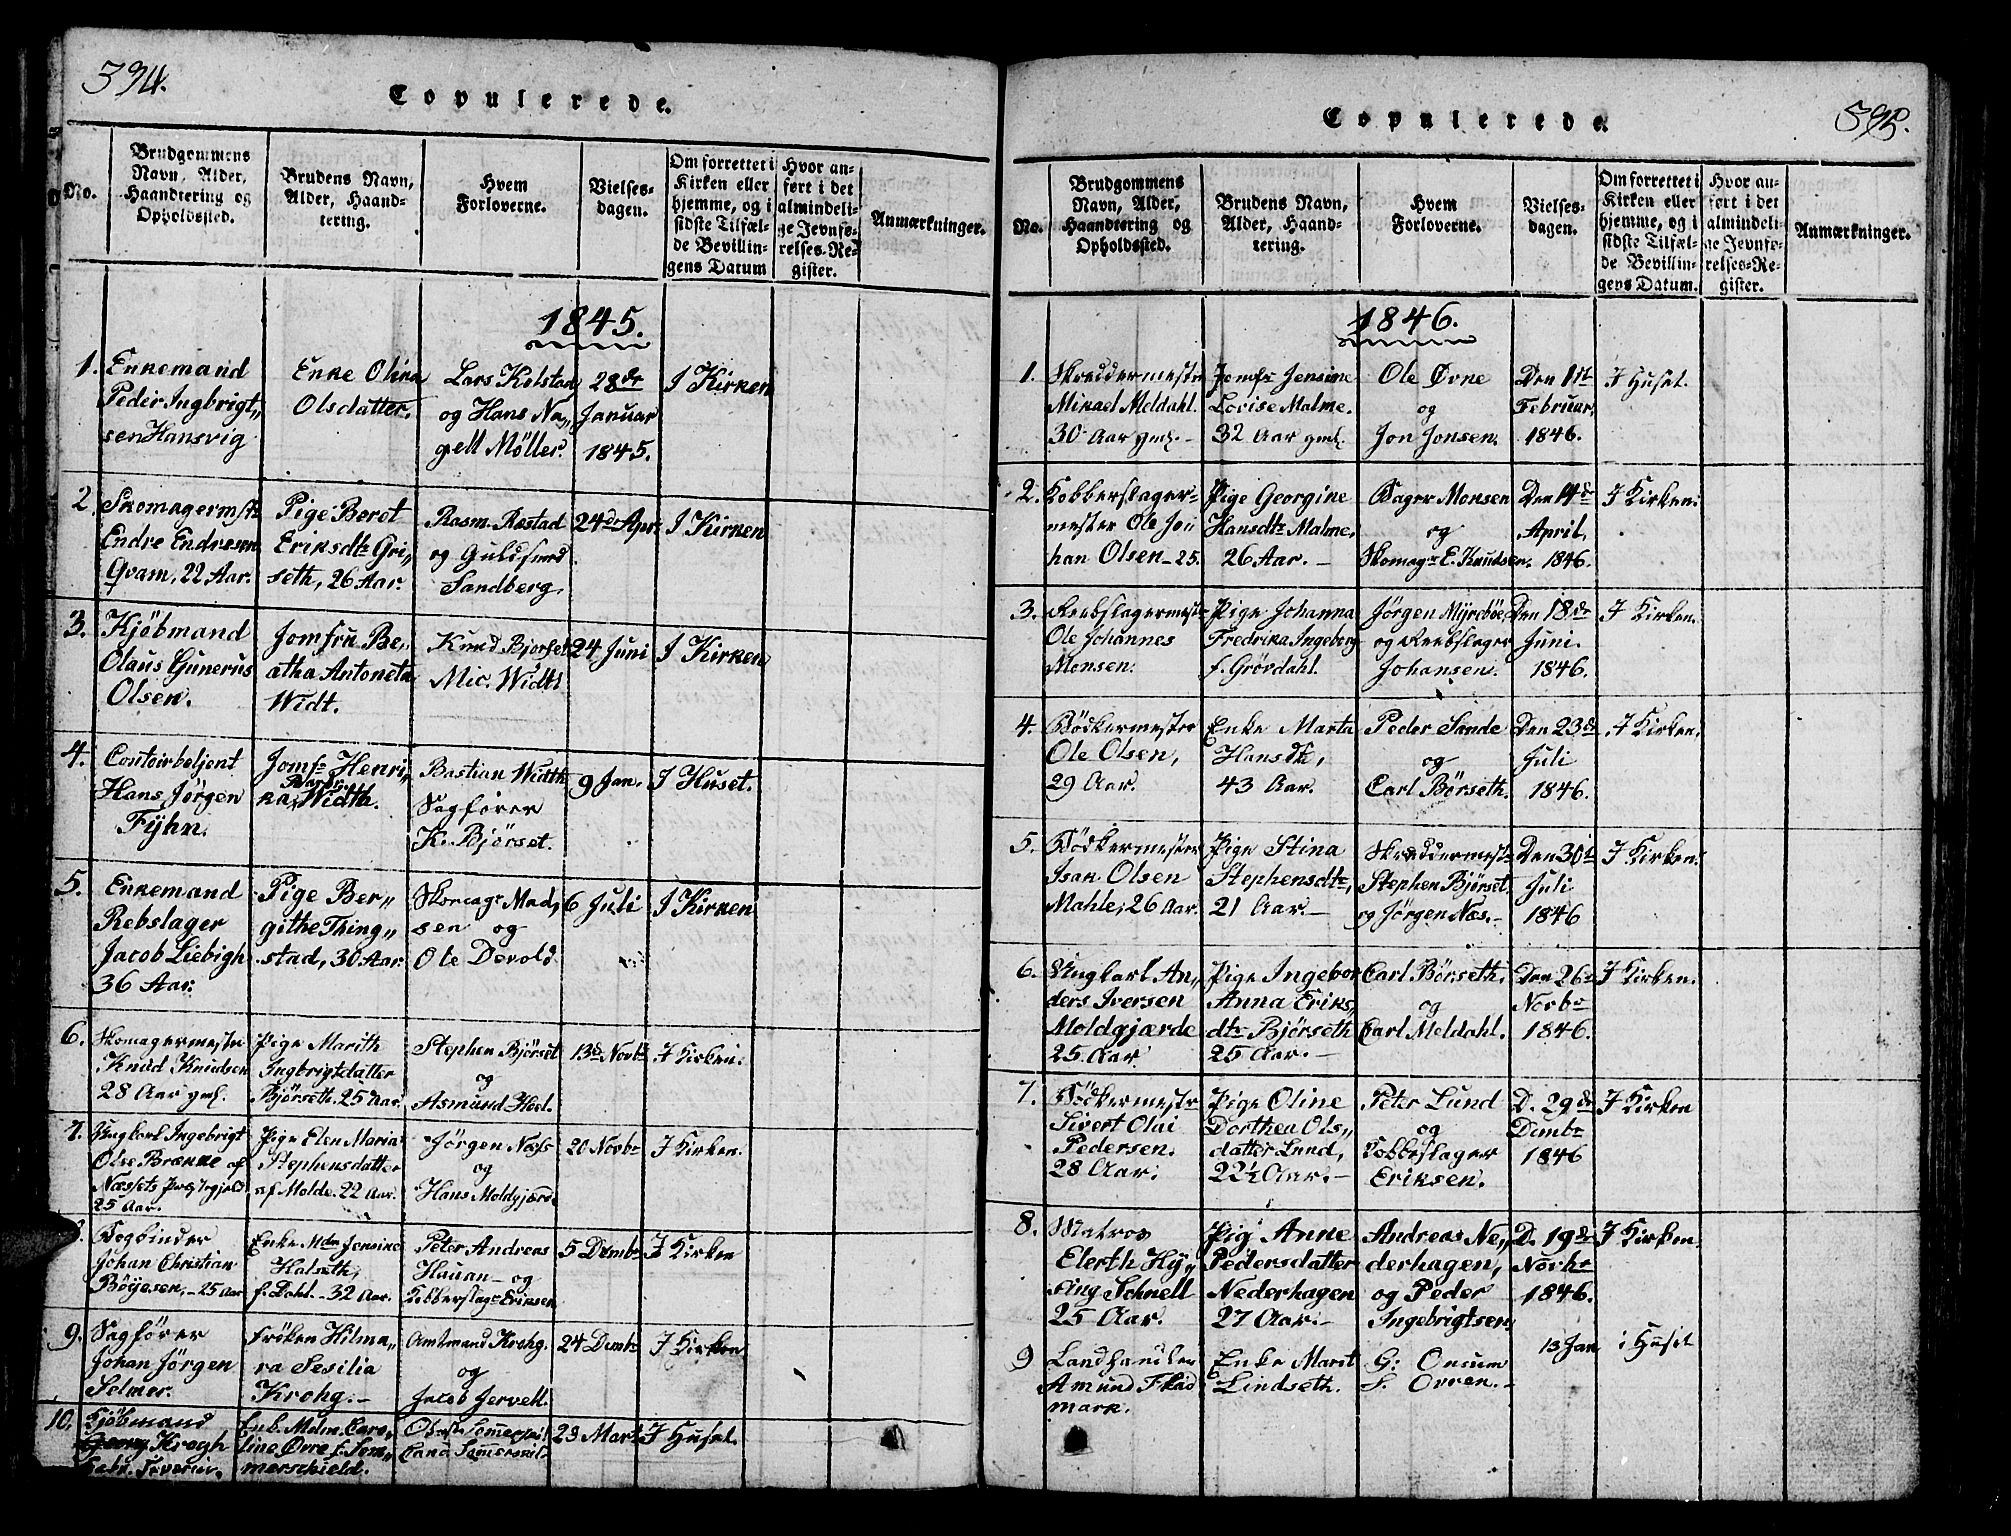 394.
Copulerede.
No.
Brudgommens
Navn, Alder,
Haandtering og
Opholdssted.
Brudens Navn,
Alder, Haand-
tering.
Hvem
Forloverne.
Vielses-
dagen.
Om forrettet i
Kirken eller
hjemme, og i
sidste Tilfæl-
de Bevillin-
gens Datum
Hvor an-
ført i det
almindeli-
ge Jevnfø-
relses-Re-
gister.
Anmærkninger.
1845.
1.
Enkemand
Peder Ingbrigt„
sen Hansvig
Enke Olina
Olsdatter.
Lars Kolstad
og Hans Na„
gell Møller.
28de
Januar
1845.
I Kirken
2
Skomagermstr
Endre Endresen
Qvam, 22 Aar.
Pige Beret
Eriksdtr Gri„
seth, 26 Aar.
Rasm. Røstad
og Guldsmed
Sandberg.
24de Apr.
I Kirken
3.
Kjøbmand
Olaus Gunerus
Olsen.
Jomfru Be„
atha Antoneta
Widt.
Knud Bjørset
Mic. Widtt
24 Juni
I Kirken
4.
Contoirbetjent
Hans Jørgen
Fyhn.
Jomfr Henri„
ka Width.
Bastian Width
Sagfører
K. Bjørset.
9 Jan.
I Huset.
5.
Enkemand
Rebslager
Jacob Liebigh
36 Aar.
Pige Ber„
githe Thing„
stad, 30 Aar.
Skomagr Mad„
sen og
Ole Devold
6 Juli
I Kirken
6.
Skomagermester
Knud Knudsen
28 Aar gml.
Pige Marith
Ingbrigtsdatter
Bjørseth. 25 Aar.
Stephen Bjørset
og
Asmund Hoel.
13de Novbr
I Kirken.
7.
Ungkarl Ingebrigt
Olse Brænne af
Næssets Præstegjeld
25 Aar.
Pige Elen Maria
Stephensdatter
af Molde. 22 Aar.
Jørgen Næss
og
Hans Moldgjærde
20 Novbr
I Kirken.
8.
Bogbinder
Johan Christian
Bøyesen, – 25 Aar
Enke Mdm Jensine
Halseth,
f. Dahl. – 32 Aar.
Peter Andreas
Hauan – og
Kobberslagr Eriksen
5 Dcmbr
I Kirken
9.
Sagfører
Johan Jørgen
Solmer.
Frøken Hilma„
ra Sesilia
Krohg. –
Amtmand Krohg.
og
Jacob Jervell.
24 Dcmbr
I Kirken
10.
Kjøbmand
Georg Krogh
Enk. Mdme Caro„
line Øvre f. Som„
merschield.
29 Mart
I Huset.
395.
Copulerede.
No.
Brudgommens
Navn, Alder,
Haandtering og
Opholdssted.
Brudens Navn,
Alder, Haand-
tering.
Hvem
Forloverne.
Vielses-
dagen.
Om forrettet i
Kirken eller
hjemme, og i
sidste Tilfæl-
de Bevillin-
gens Datum.
Hvor an-
ført i det
almindeli-
ge Jevnfø-
relses-Re-
gister.
Anmærkninger.
1846.
1.
Skreddermester
Mikael Meldahl.
30 Aar gml. –
Jomfr Jensine
Lovise Malme.
32 Aar gml.
Ole Øvre
og
Jon Jonsen.
Den 1st
Februar.
1846.
I Huset.
2.
Kobberslager-
mester Ole Jo„
han Olsen – 25.
Pige Georgine
Hansdtr Malme,
26 Aar. –
Bager Monsen
og
Skomagr E. Knudsen.
Den 14de
April,
1846.
I Kirken.
3.
Reebslagermester
Ole Johannes
Monsen.
Pige Johanna
Fredrika Ingeborg
f. Grøvdahl.
Jørgen Myrebøe
og Reebslager
Johansen.
Den 18de
Juni.
1846.
I Kirken.
4.
Bødkermester
Ole Olsen,
29 Aar.
Enke Marta
Hansdtr,
43 Aar.
Peder Sande
og
Carl Børseth.
Den 23de
Juli
1846.
I Kirken.
5.
Bødkermester
Isak Olsen
Mahle, 26 Aar.
Pige Stina
Stephensdtr,
21 Aar. –
Skreddermestr
Stephen Bjørset
og Jørgen Næs. –
Den 30te
Juli
1846
I Kirken.
6.
Ungkarl An„
ders Iversen
Moldgjærde
25 Aar
Pige Ingebor
Anna Eriks„
dtr Bjørseth
25 Aar. –
Carl Børseth.
og
Carl Meldahl.
Den 26de
Novbr
1846.
I Kirken.
7.
Bødkermestr
Sivert Olai
Pedersen.
28 Aar.
Pige Oline
Dorthea Ols„
datter Lund,
22½ Aar. –
Peter Lund
og
Kobberslager
Eriksen.
D. 29de
Dcmbr
1846
I Kirken
8.
Matros
Elerth Hy„
sing Schnell
25 Aar.
Pig Anne
Pedersdatter
Nederhagen
27 Aar. –
Andreas Ne„
derhagen,
og Peder
Ingebrigtsen.
D. 19de
Novbr
1846.
I Kirken.
9
Landhandler
Amund Flad
mark.
Enke Marit
Lindseth.
G: Onsum
S. Ovren. –
13 Jan
i Huset